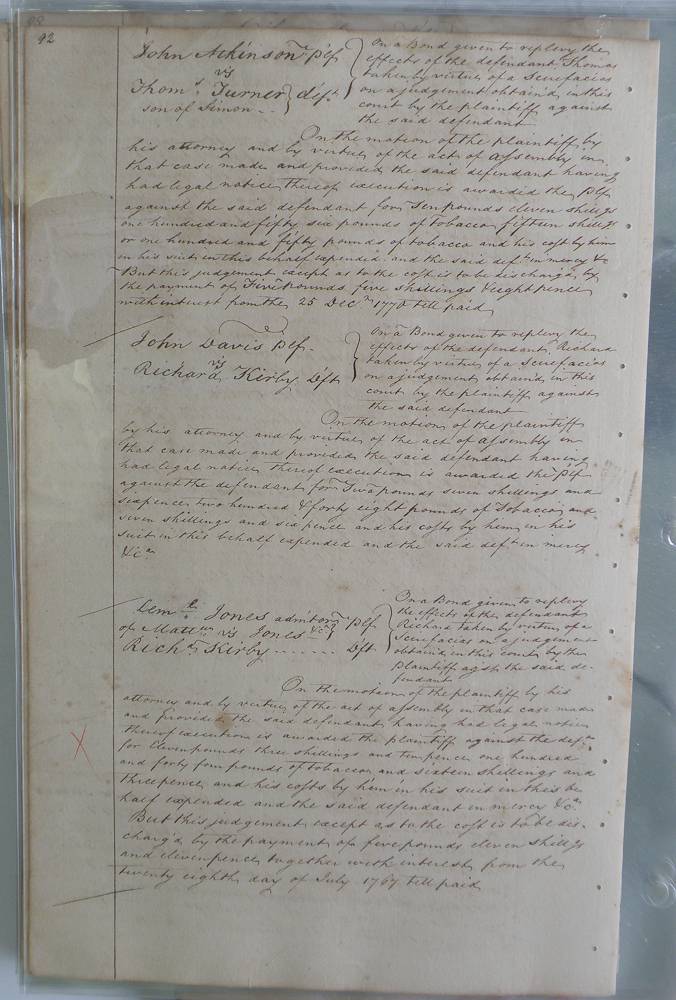 92
John Atkinson Plf
vs
Thoms. Turner deft.
son of Simon
On a Bond given to replevy the
effects of the defendant Thomas
taken by virtue of a Scirefacias
on a judgement obtain'd in this
court by the plaintiff against
the said defendant
On the motion of the plaintiff by
his attorney and by virtue of the act of assembly in
that case made and provided the said defendant having
had legal notice thereof execution is awarded the Plf
against the said defendant for Ten pounds eleven shillgs
one hundred and fifty six pounds of Tobacco fifteen shillgs
or one hundred and fifty pounds of tobacco and his costs by him
in his suit in this behalf expended and the said deft. in mercy &c
But this judgement except as to the costs is to be discharg'd by
the payment of Five pounds five shillings & eight pence
with interest from the 25 Decm 1770 till paid
John Davis Plf.
vs
Richard Kirby Deft
On a Bond given to replevy the
effects of the defendant Richard
taken by virtue of a Scirefacias
on a judgement obtain'd in this
court by the plaintiff against
the said defendant
On the motion of the plaintiff
by his attorney and by virtue of the act of assembly in
that case made and provided the said defendant having
had legal notice thereof execution is awarded the Plf
against the defendant for Two pounds seven shillings and
sixpence two hundred & forty eight pounds of Tobacco and
seven shillings and six pence and his costs by him in his
suit in this behalf expended and the said deft. in mercy
&ca.
Leml. Jones admtor Plf
of Matthw Jones &c
vs
Richd. Kirby ....... Deft.
On a Bond given to replevy
the effects of the defendant
Richard taken by virtue of a
Scirefacias on a judgement
obtain'd in this court by the
plaintiff agst. the said de-
fendant
On the motion of the plaintiff by his
attorney and by virtue of the act of assembly in that case made
and provided the said defendant having had legal notice
thereof execution is awarded the plaintiff against the deft.
for Eleven pounds three shillings and ten pence one hundred
and forty four pounds of tobacco and sixteen shillings and
three pence and his costs by him in his suit in this be
half expended and the said defendant in mercy &ca.
But this judgement except as to the costs is to be dis-
charg'd by the payment of five pounds eleven shillgs
and eleven pence together with interest from the
twenty eighth day of July 1767 till paid